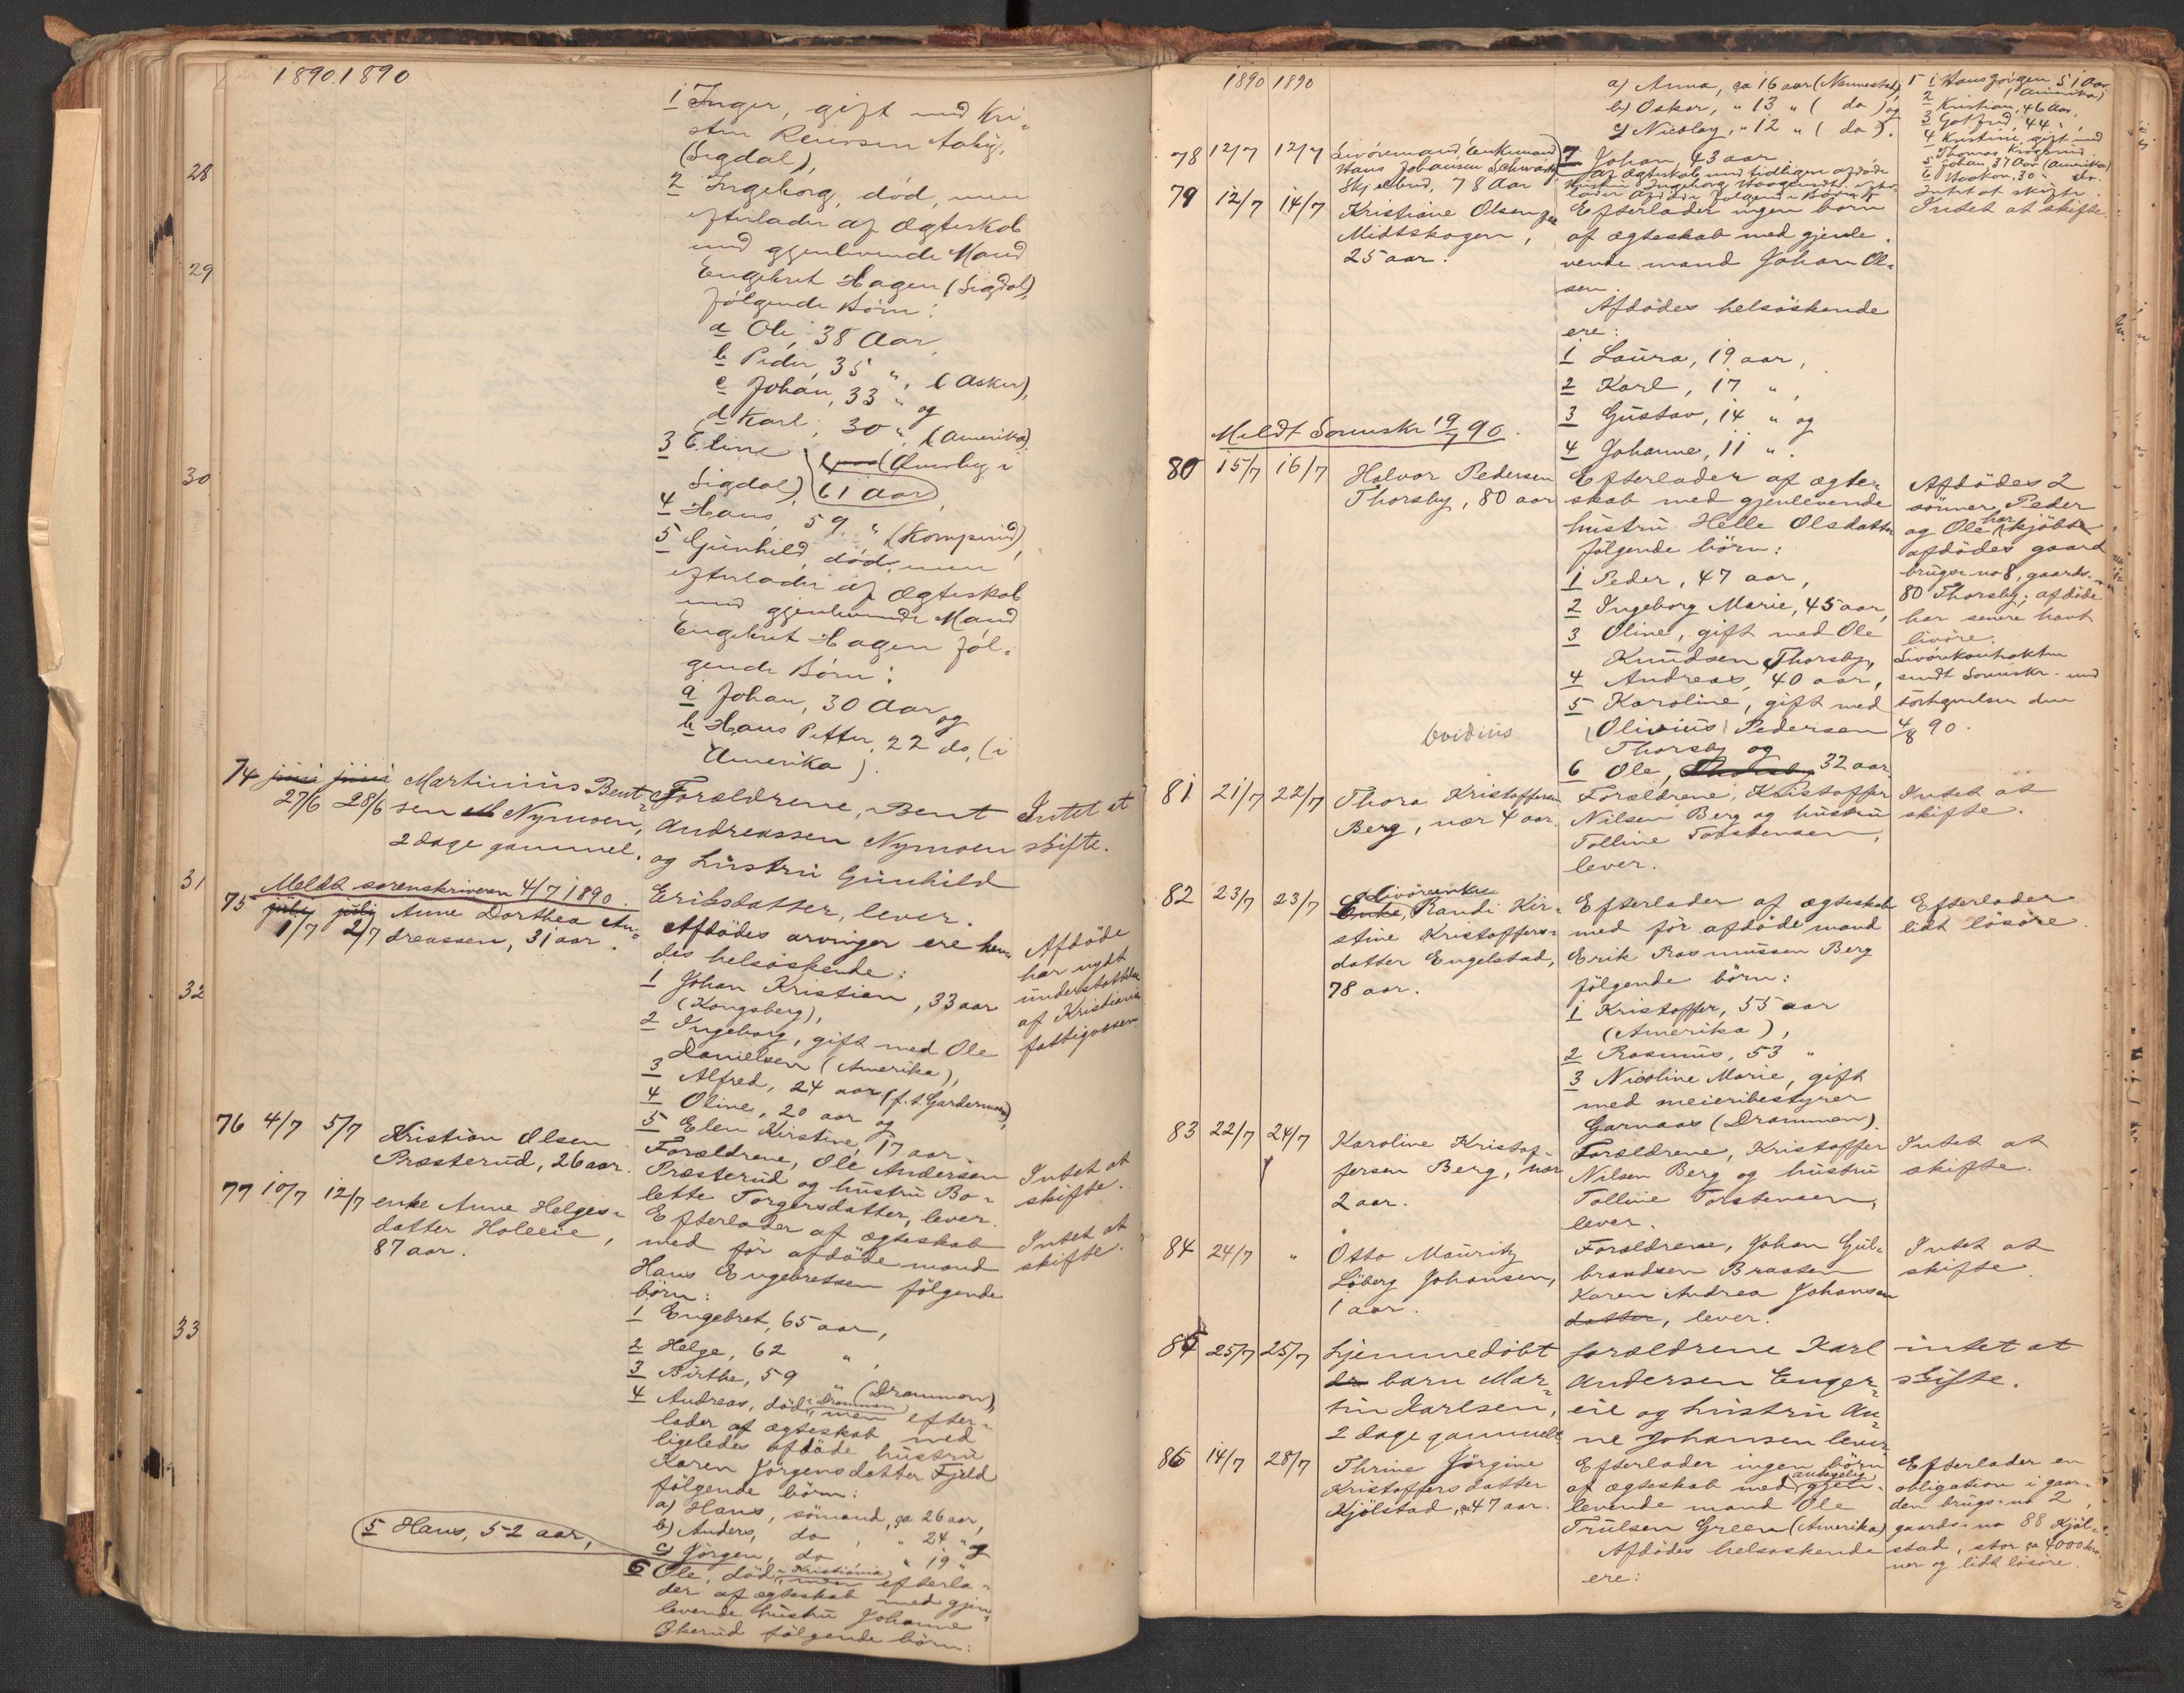 1890. 1890
1 Inger, gift med Kri-
sten Reiersen Aaby,
(Sigdal),
28
2 Ingeborg, död, men
efterlader af Ægteskab
med gjenlevende Mand
29
Engebret Hagen (Sigdal),
følgende Børn:
a Ole, 38 Aar,
b Peder, 35 ",
c Johan, 33 " (Asker), og
d Karl, 30 " (Amerika).
3 Eline (Aaserby i
30
Sigdal), 61 Aar,
4 Hans, 59 " (Komperud),
5 Gunhild, död, men
efterlader af Ægteskab
med gjenlevende Mand
Engebret Hagen føl-
gende Børn:
a Johan, 30 Aar og
b Hans Petter, 22 do, (i
Amerika).
74 juni juni Martinius Bent- Forældrene, Bent Intet at
27/6 28/6 sen Nymoen, Andreassen Nymoen skifte.
2 dage gammel. og hustru Gunhild
31 Meldt sorenskriveren 4/7 1890. Eriksdatter, lever.
75 juli juli Anne Dorthea An- Afdödes arvinger ere hen- Afdöde
1/7 2/7 dreassen, 31 aar. des helsöskende: har nydt
32 1 Johan Kristian, 33 aar understøttelse
(Kongsberg), af Kristiania
2 Ingeborg, gift med Ole fattigvæsen.
Danielsen (Amerika),
3 Alfred, 24 aar (f. t. Gardermoen),
4 Oline, 20 aar og
5 Elen Kirstine, 17 aar.
76 4/7 5/7 Kristian Olsen Forældrene, Ole Andersen Intet at
Præsterud, 26 aar. Præsterud og hustru Bo- skifte.
lette Torgersdatter, lever.
77 10/7 12/7 enke Anne Helges- Efterlader af ægteskab Intet at
datter Holeeie, med för afdöde mand skifte.
87 aar. Hans Engebretsen fölgende
börn:
33 1 Engebret, 65 aar,
2 Helge, 62 ",
3 Birthe, 59 " (Drammen),
4 Andreas, död i Drammen, men efter-
lader af ægteskab med
ligeledes afdöde hustru
Karen Jörgensdatter Fjeld
fölgende börn:
a) Hans, sömand, ca 26 aar,
b) Anders, do, " 24 " og
c) Jörgen, do " 19 "
5 Hans, 52 aar,
6 Ole, död i Kristiania, men efterla-
der af ægteskab med gjen-
levende hustru Johanne
Økerud fölgende börn:
1890 1890
a) Anna, ca 16 aar (Nannestad),
b) Oskar, " 13 " ( do ) og
c) Nicolay, " 12 " ( do ).
7 Johan, 43 aar
78 12/7 12/7 Livöremand (enkemand)
Hans Johansen Schwartz
Skjelbred, 78 Aar
Af Ægteskab med tidligere afdöde
Hustru Ingeborg
følgende Børn:
1 Hans Jörgen 51 Aar
(Amerika)
2 Kristian, 46 Aar,
3 Gotfred, 44 ",
4 Kristine gift med
Thomas Krogsrud
5 Johan, 37 Aar (Amerika)
6 Haakon, 30 " do.
Intet at skifte.
79 12/7 14/7 Kristiane Olsen Efterlader ingen barn Intet at skifte.
Midtskogen, af ægteskab med gjenle-
25 aar. vende mand Johan Ol-
sen.
Afdödes helsöskende
ere:
1 Laura, 19 aar,
2 Karl, 17 ",
3 Gustav, 14 " og
Meldt Sorenskr 19/7 90.
4 Johanne, 11 ".
80 15/7 16/7 Halvor Pedersen Efterlader af ægte- Afdödes 2
Thorsby, 80 aar skab med gjenlevende sönner, Peder
hustru Helle Olsdatter og Ole har kjöbt
fölgende börn: afdödes gaard
1 Peder, 47 aar, brugs-no 8, gaards-no
2 Ingeborg Marie, 45 aar, 80 Thorsby; afdöde
3 Oline, gift med Ole har senere havt
Knudsen Thorsby, livöre.
4 Andreas, 40 aar, Livörekontrakten
5 Karoline, gift med sendt Sorenskr. med
Ovidius Olivius Pedersen 4/8 90.
Thorsby og
6 Ole, Thorsby 32 aar.
81 21/7 22/7 Thora Kristoffersen Forældrene, Kristoffer Intet at
Berg, nær 4 aar. Nilsen Berg og hustru skifte.
Tolline Torstensen,
lever.
82 23/7 23/7 Livöreenke
Enke, Randi Kir- Efterlader af ægteskab Efterlader
stine Kristoffers- med för afdöde mand lidt lösöre.
datter Engelstad, Erik Rasmussen Berg
78 aar. fölgende börn:
1 Kristoffer, 55 aar
(Amerika),
2 Rasmus, 53 "
3 Nicoline Marie, gift
med meieribestyrer
Garnaas (Drammen).
83 22/7 24/7 Karoline Kristof- Forældrene, Kristoffer Intet at
fersen Berg, nær Nilsen Berg og hustru skifte.
2 aar. Tolline Torstensen,
lever.
84 24/7 " Otto Mauritz Forældrene, Johan Gul- Intet at
Löberg Johansen, brandsen Braaten skifte.
1 aar. Karen Andrea Johansen
datter, lever.
85 25/7 25/7 hjemmedöbt forældrene Karl intet at
barn Mar- Andersen Enger- skifte.
tin Karlsen, eie og hustru An-
2 dage gammelt ne Johansen lever.
86 14/7 28/7 Thrine Jörgine Efterlader ingen börn Efterlader en
Kristoffersdatter af ægteskab med antagelig gjen- obligation i gaar-
Kjölstad, ca 47 aar. levende mand Ole den brugs-no 2,
Trulsen Green (Amerika) gaards-no 88 Kjöl-
Afdödes helsöskende stad, stor ca 4000 kro-
ere: ner og lidt lösöre.